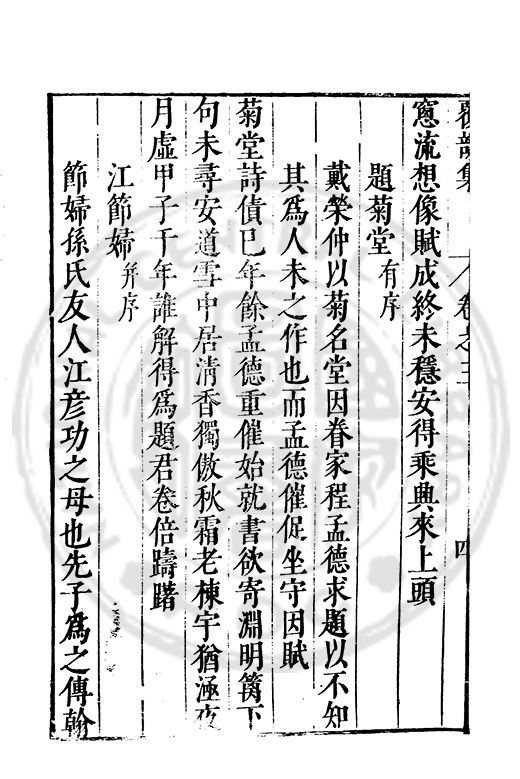 覆瓿集 卷之三 四
窻流想像賦成終未穩安得乘興來上頭
題菊堂有序
戴榮仲以菊名堂因眷家程孟德求題以不知
其爲人未之作也而孟德催促坐守因賦
菊堂詩債已年餘孟德重催始就書欲寄淵明篱下
句未尋安道雪中居清香獨傲秋霜老棟宇猶涵夜
月虛甲子千年誰解得爲題君卷倍躊躇
江節婦并序
節婦孫氏友人江彦功之母也先子爲之傳翰